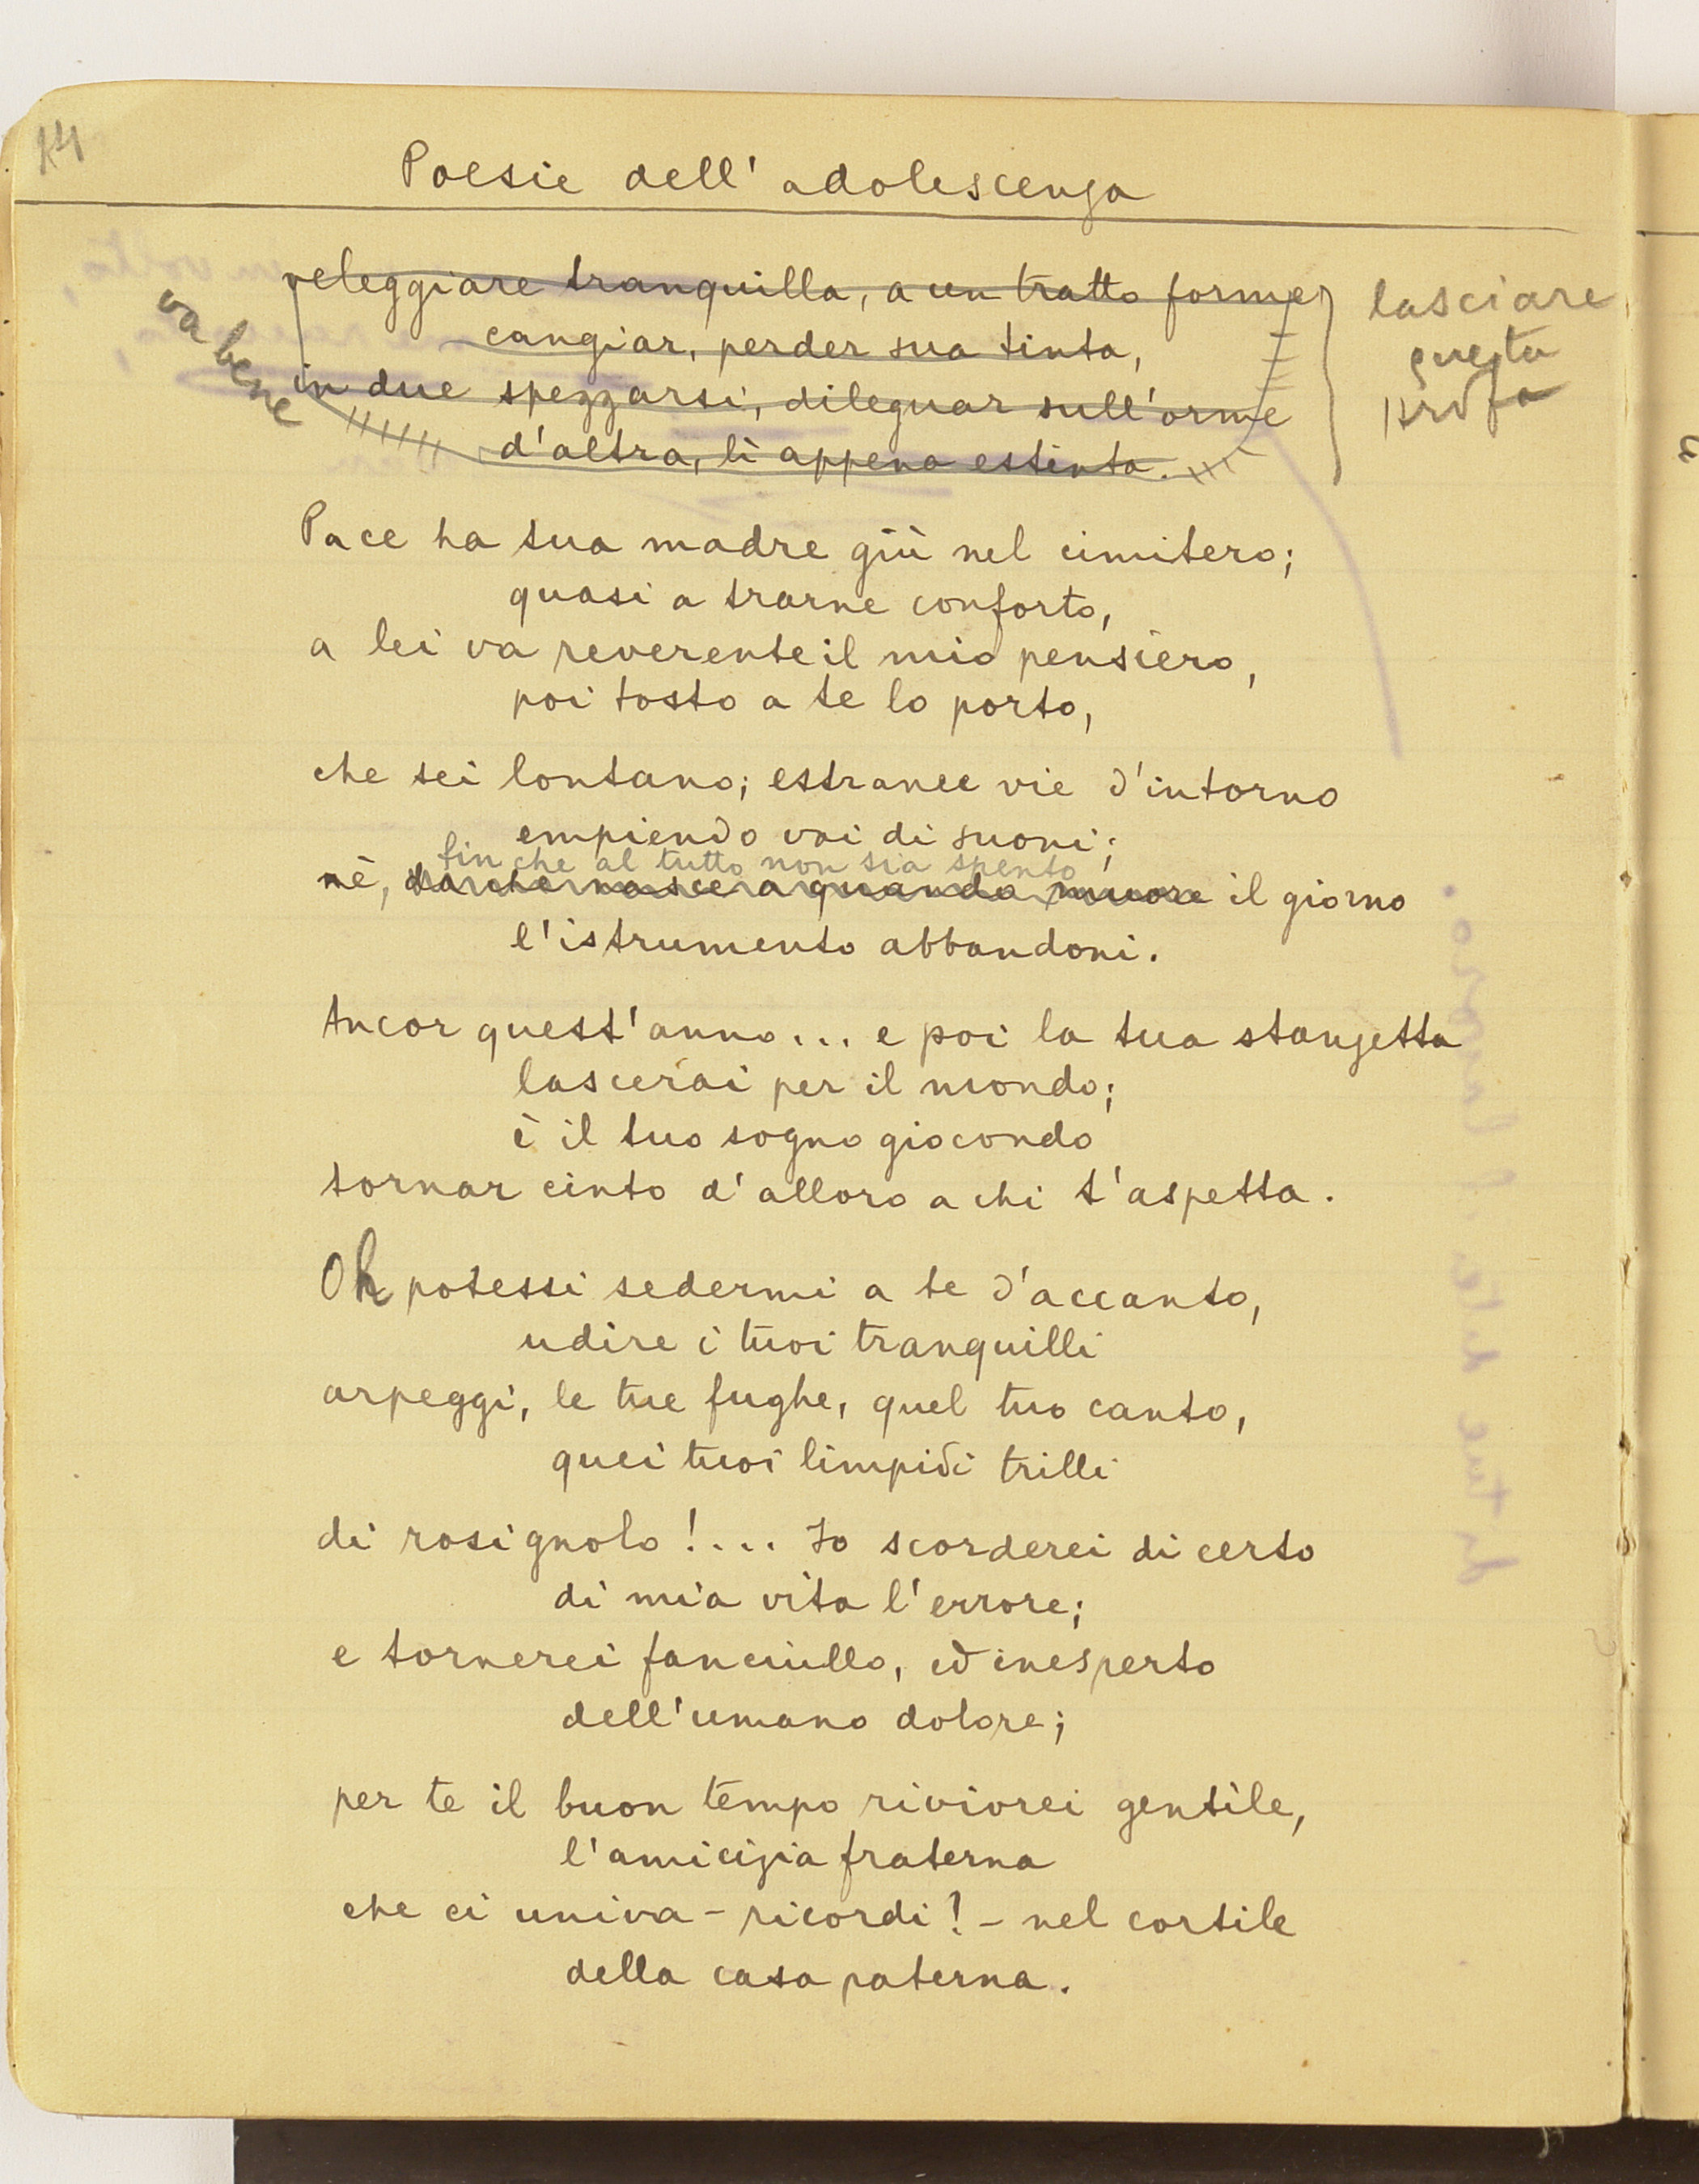 14
Poesie dell'adolescenza
veleggiare tranquilla, a un tratto forme
cangiar, perder sua tinta,
in due spezzarsi, dileguar sull'orme
d'altra, lì appena estinta.
va bene
lasciare
questa
strofa
Pace ha tua madre giù nel cimitero;
quasi a trarne conforto,
a lei va reverente il mio pensiero,
poi tosto a te lo porto,
che sei lontano; estranee vie d'intorno
empiendo vai di suoni;
finche al tutto non sia spento
nè, da che nasce a quando muore il giorno
l'istrumento abbandoni.
Ancor quest'anno... e poi la tua stanzetta
lascerai per il mondo;
è il tuo sogno giocondo
tornar cinto d'alloro a chi t'aspetta.
Oh potessi sedermi a te d'accanto,
udire i tuoi tranquilli
arpeggi, le tue fughe, quel tuo canto,
quei tuoi limpidi trilli
di rosignolo!... Io scorderei di certo
di mia vita l'errore;
e tornerei fanciullo, ed inesperto
dell'umano dolore;
per te il buon tempo rivivrei gentile,
l'amicizia fraterna
che ci univa - ricordi! - nel cortile
della casa paterna.